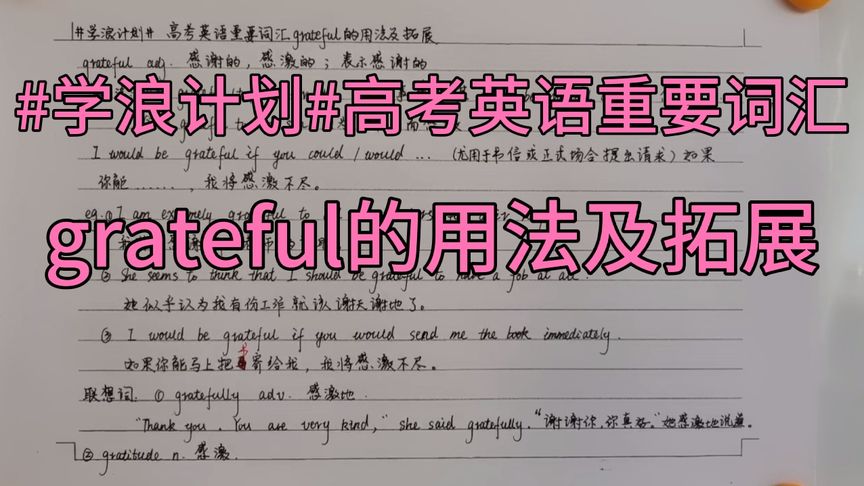 #学浪计划# 高考英语重要词汇grateful的用法及拓展
grateful adj. 感谢的, 感激的; 表示感谢的
#学浪计划#高考英语重要词汇
I would be grateful if you could / would ... (尤用于书信或正式场合提出请求) 如果
你能 ......, 我将感激不尽。
eg. ① I am extremely grateful to
grateful的用法及拓展
② She seems to think that I should be grateful to have a job at all.
她似乎认为我有份工作就该谢天谢地了。
③ I would be grateful if you would send me the book immediately.
如果你能马上把书寄给我, 我将感激不尽。
联想词: ① gratefully adv. 感激地.
"Thank you. You are very kind," she said gratefully. "谢谢你, 你真好。" 她感激地说道。
② gratitude n. 感激.